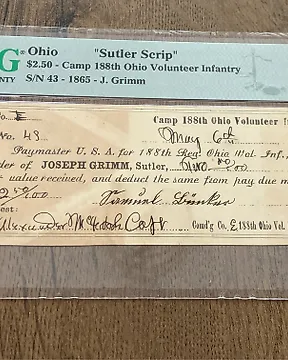 G Ohio "Sutler Scrip"
NTY $2.50 - Camp 188th Ohio Volunteer Infantry
S/N 43 - 1865 - J. Grimm
Camp 188th Ohio Volunteer I
No. 43 May 6th
Paymaster U. S. A. for 188th Reg. Ohio Vol. Inf.,
der of JOSEPH GRIMM, Sutler, Two 50/100
e value received, and deduct the same from pay due m
2 50/100 Samuel
est:
Capt Comd'g Co. E, 188th Ohio Vol.